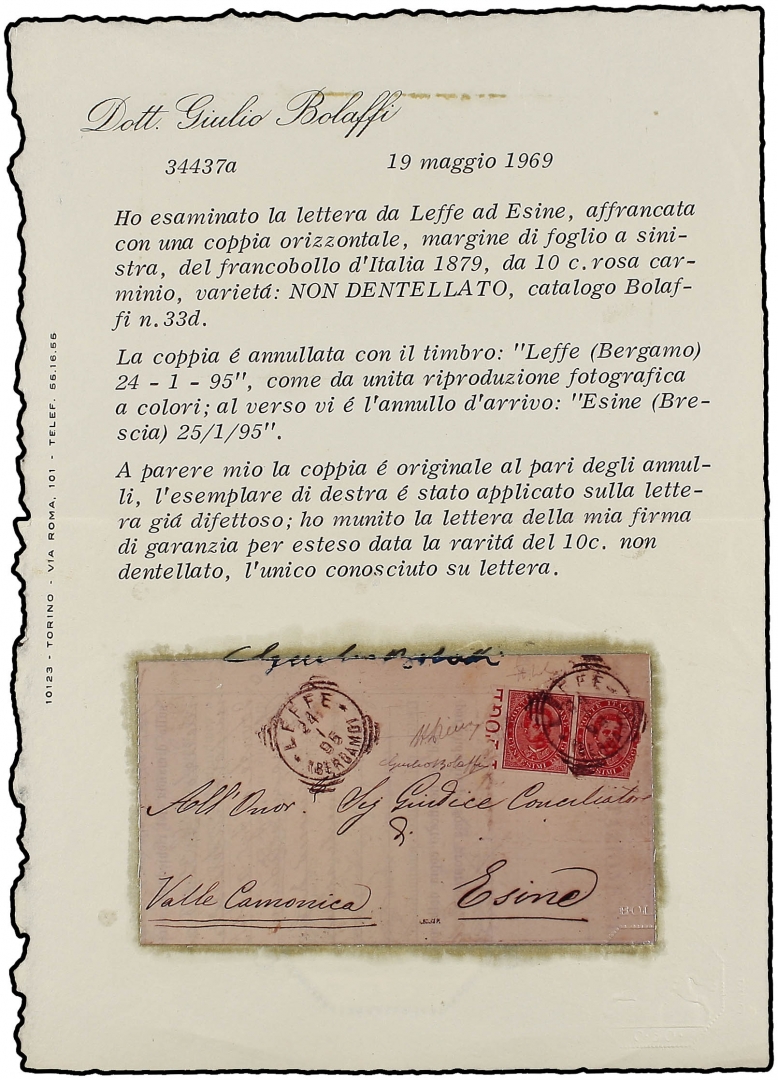 Dott. Giulio Bolaffi
34437a 19 maggio 1969
Ho esaminato la lettera da Leffe ad Esine, affrancata
con una coppia orizzontale, margine di foglio a sini-
stra, del francobollo d'Italia 1879, da 10 c. rosa car-
minio, varietá: NON DENTELLATO, catalogo Bolaf-
fi n. 33d.
La coppia é annullata con il timbro: "Leffe (Bergamo)
24 - 1 - 95", come da unita riproduzione fotografica
a colori; al verso vi é l'annullo d'arrivo: "Esine (Bre-
scia) 25/1/95".
A parere mio la coppia é originale al pari degli annul-
li, l'esemplare di destra é stato applicato sulla lette-
ra giá difettoso; ho munito la lettera della mia firma
di garanzia per esteso data la raritá del 10c. non
dentellato, l'unico conosciuto su lettera.
10123 - TORINO - VIA ROMA, 101 - TELEF. 55.16.55
Giulio Bolaffi
LEFFE
24
1
95
(BERGAMO)
LEFFE
GiulioBolaffi
All' Onor. Sig Giudice Conciliatore
di
Valle Camonica Esine